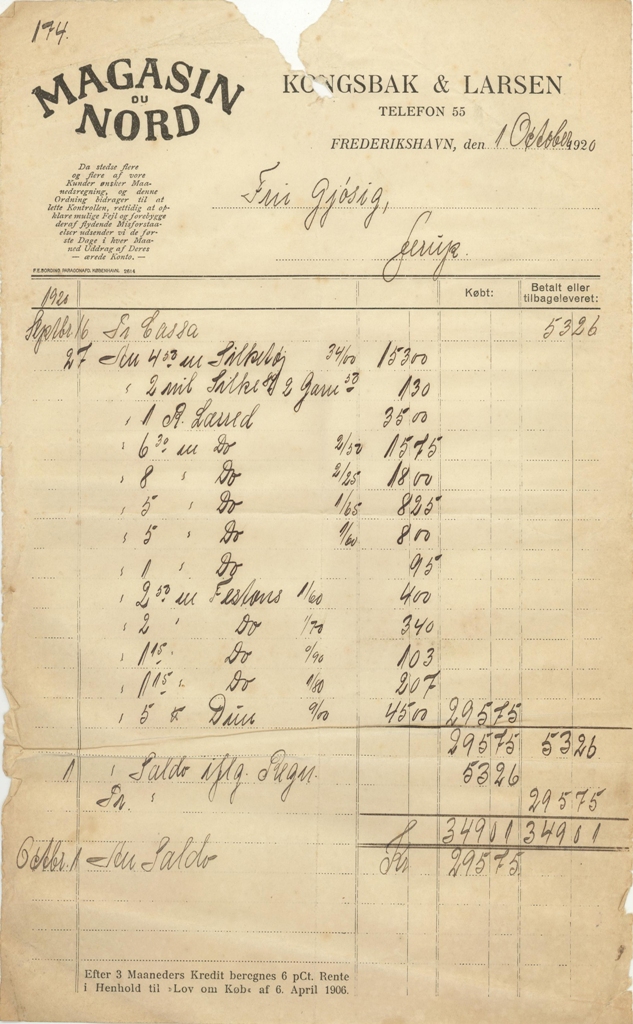 174.
MAGASIN
DU
NORD
KONGSBAK & LARSEN
TELEFON 55
FREDERIKSHAVN, den 1 October 1920
Da stedse flere
og flere af vore
Kunder ønsker Maa-
nedsregning, og denne
Ordning bidrager til at
lette Kontrollen, rettidig at op-
klare mulige Fejl og forebygge
deraf flydende Misforstaa-
elser udsender vi de før-
ste Dage i hver Maa-
ned Uddrag af Deres
— ærede Konto. —
Gjösig,
Jerup.
F.E. BORDING, KØBENHAVN. 2614
Købt: Betalt eller tilbageleveret:
1920
Septbr 16 Pr Cassa 5326
27 An 4 50 m Silketöj 34/00 15300
" 2 Silke 2 Garn 130
" 1 R. Lærred 3500
" 6 30 m Do 2/50 1575
" 8 " Do 2/25 1800
" 5 " Do 1/65 825
" 5 " Do 1/60 800
" 1 " Do 95
" 2 50 m Festons 1/60 400
" 2 " Do 1/70 340
" 1 15 " Do 0/90 103
" 1 15 " Do 1/80 207
" 5 Dun 9/00 4500 29575
29575 5326
1 " Saldo iflg. Regn. 5326
Pr. " 29575
34901 34901
Octbr. 1 An Saldo Kr 29575
Efter 3 Maaneders Kredit beregnes 6 pCt. Rente
i Henhold til »Lov om Køb« af 6. April 1906.